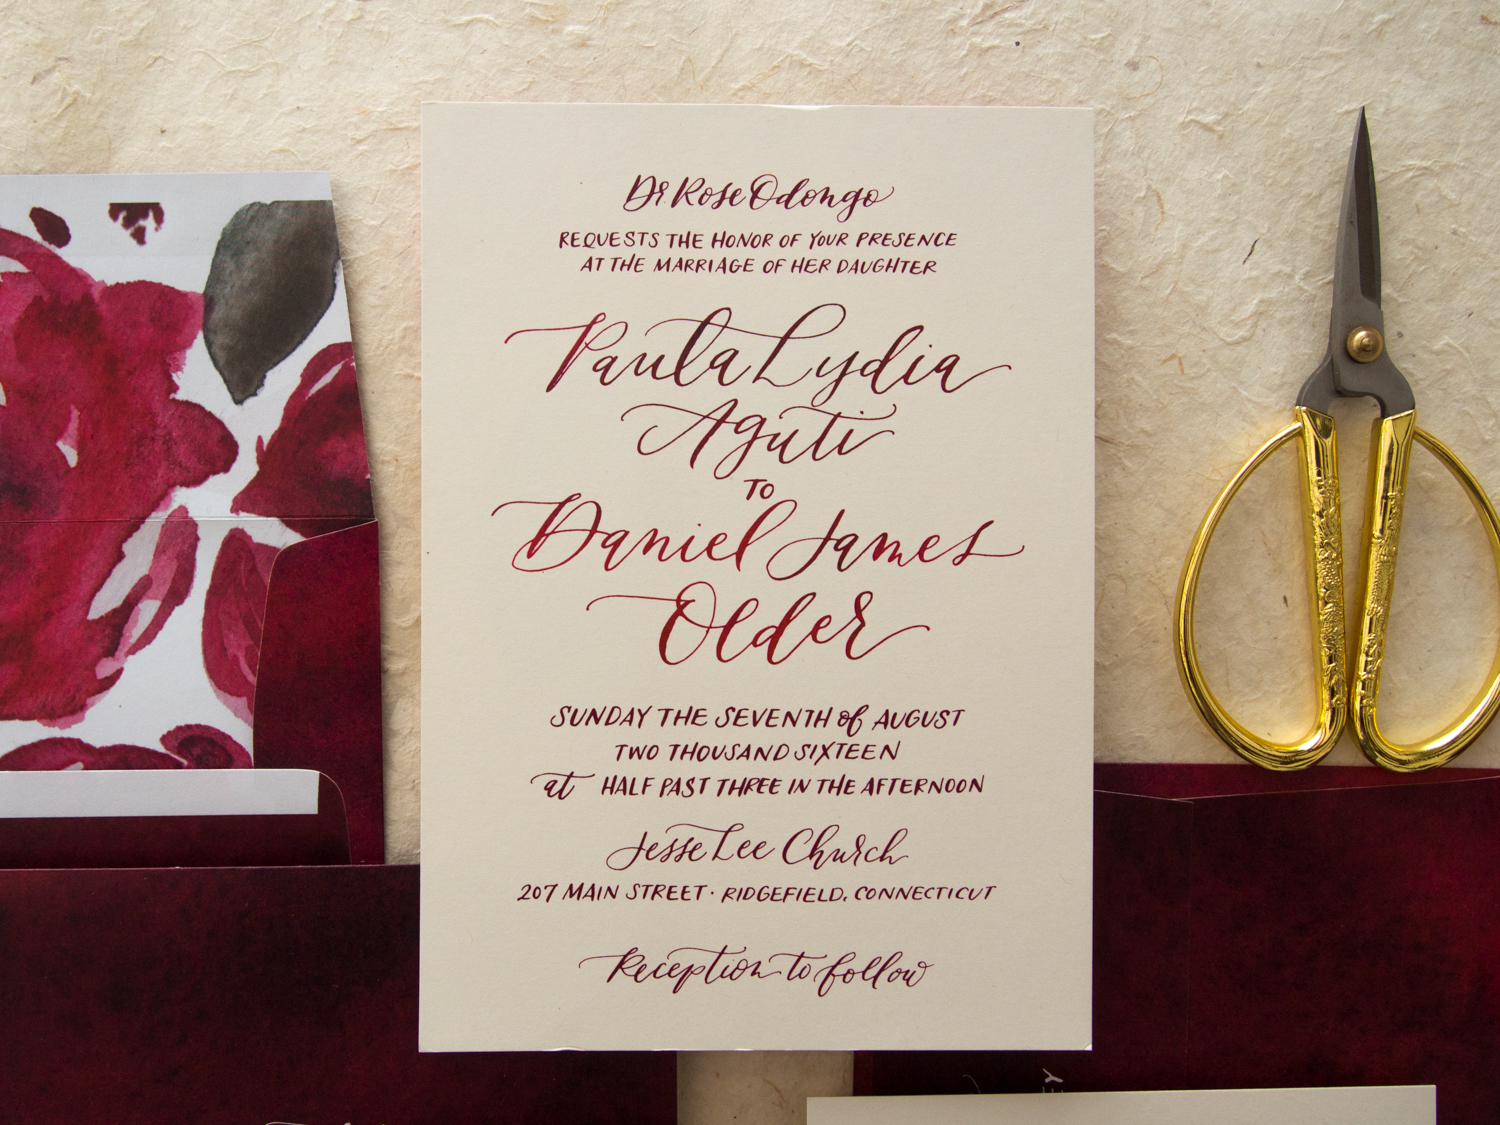 Dr Rose Odongo
REQUESTS THE HONOR OF YOUR PRESENCE
AT THE MARRIAGE OF HER DAUGHTER
Paula Lydia
Aguti
TO
Daniel James
Older
SUNDAY THE SEVENTH of AUGUST
TWO THOUSAND SIXTEEN
at HALF PAST THREE IN THE AFTERNOON
Jesse Lee Church
207 MAIN STREET · RIDGEFIELD, CONNECTICUT
Reception to follow